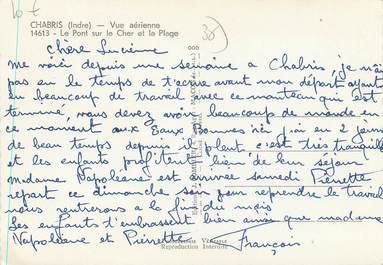 10 €
CHABRIS (Indre) — Vue aérienne
14613 - Le Pont sur le Cher et la Plage
30
Chère Lucienne
me voici depuis une semaine a Chabris, je n'ai
pas eu le temps de t'ecrire avant mon départ ayant
eu beaucoup de travail avec ce moteau qui est
terminé, vous devez avoir beaucoup de monde en
ce moment aux Eaux Bonnes ici j'ai eu 2 jours
de beau temps depuis il pleut c'est très tranquille
et les enfants profitent bien de leur séjour
madame Napoléane est arrivée samedi Pierrette
repart ce dimanche soir pour reprendre le travail
nous rentrerons a la fin du mois
Les enfants t'embrassent bien ainsi que madame
Napoléane et Pierrette François
Reproduction Interdite